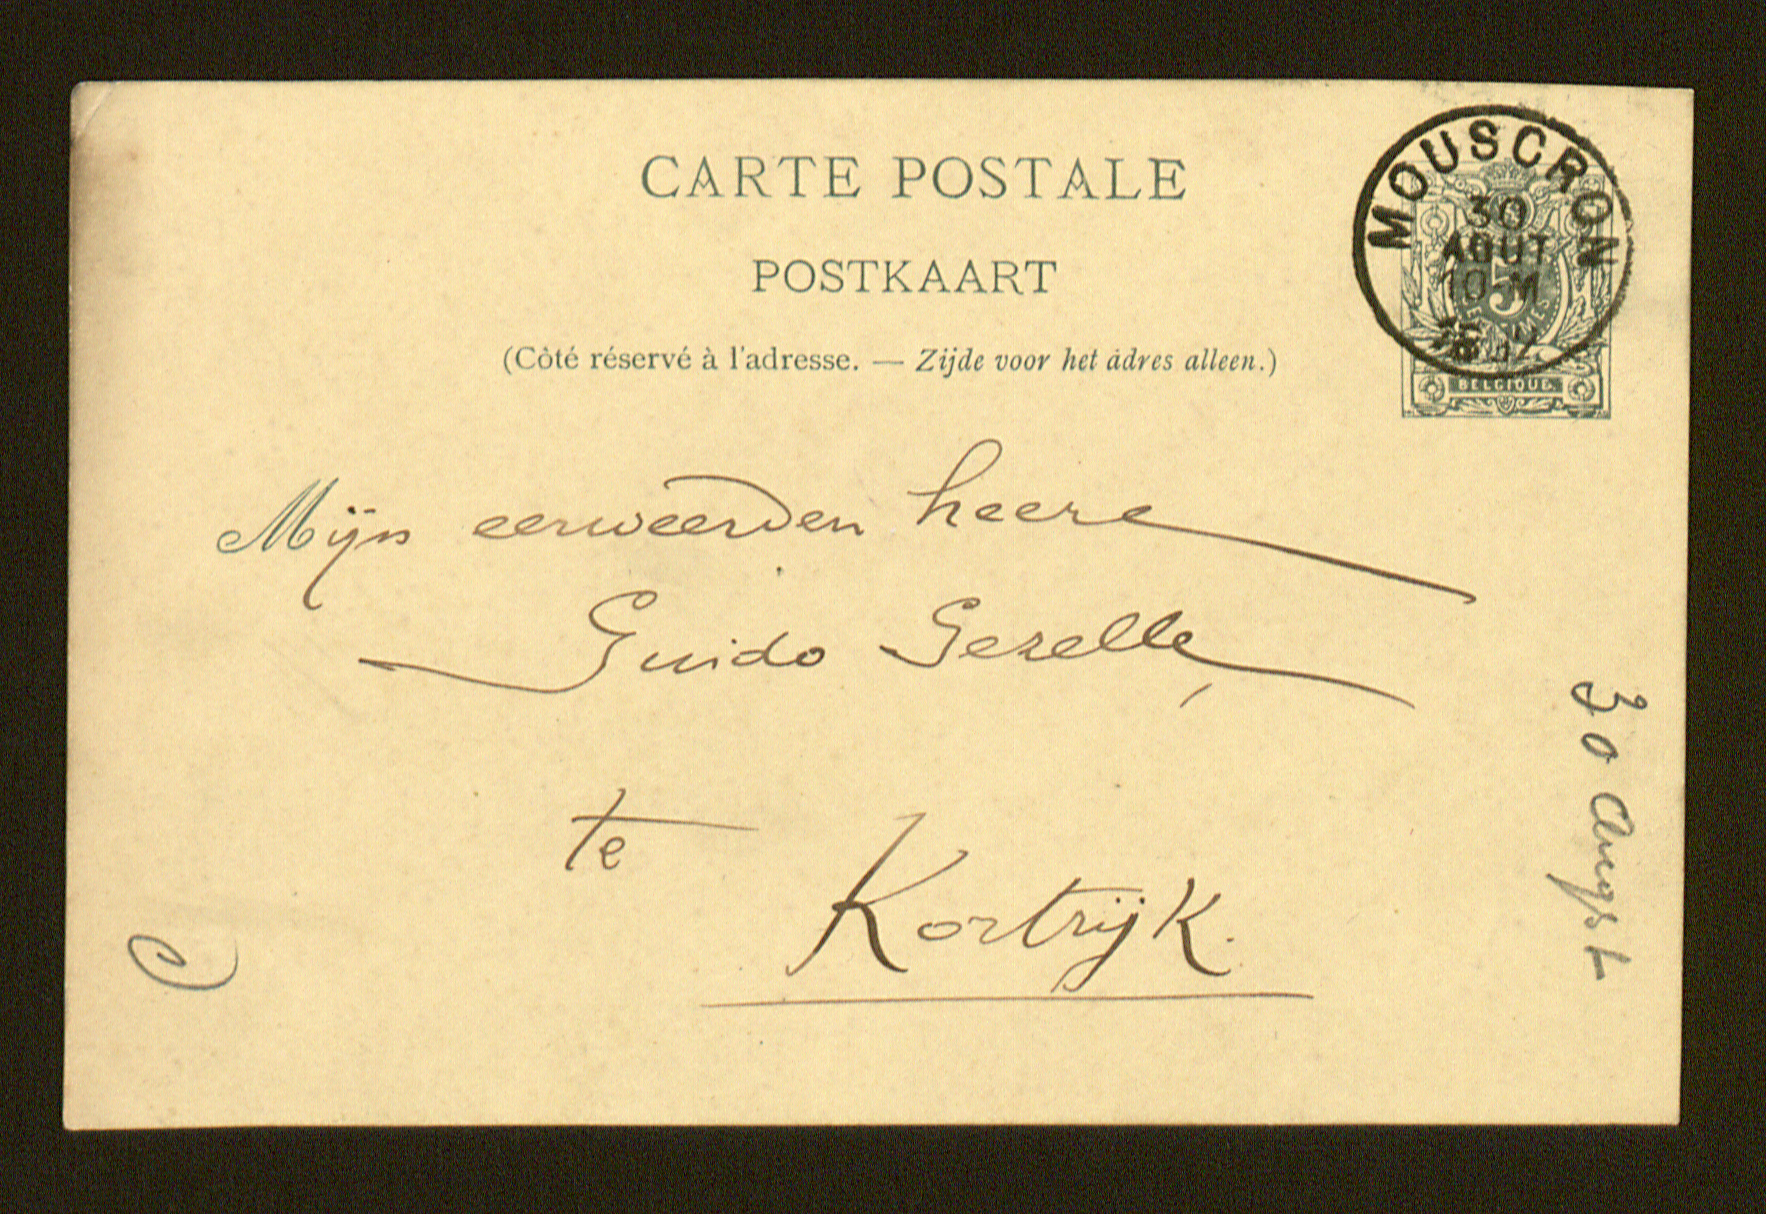 CARTE POSTALE
POSTKAART
(Côté réservé à l'adresse. — Zijde voor het adres alleen.)
MOUSCRON
30
AOUT
10-M
5
BELGIQUE.
Mijn eerweerden heere
Guido Gezelle,
te
Kortrijk.
30 Augst